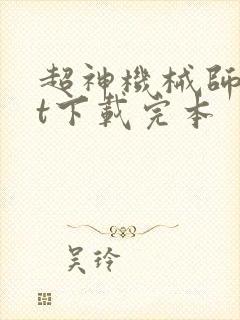 超神機械師
t下載完本
吴玲